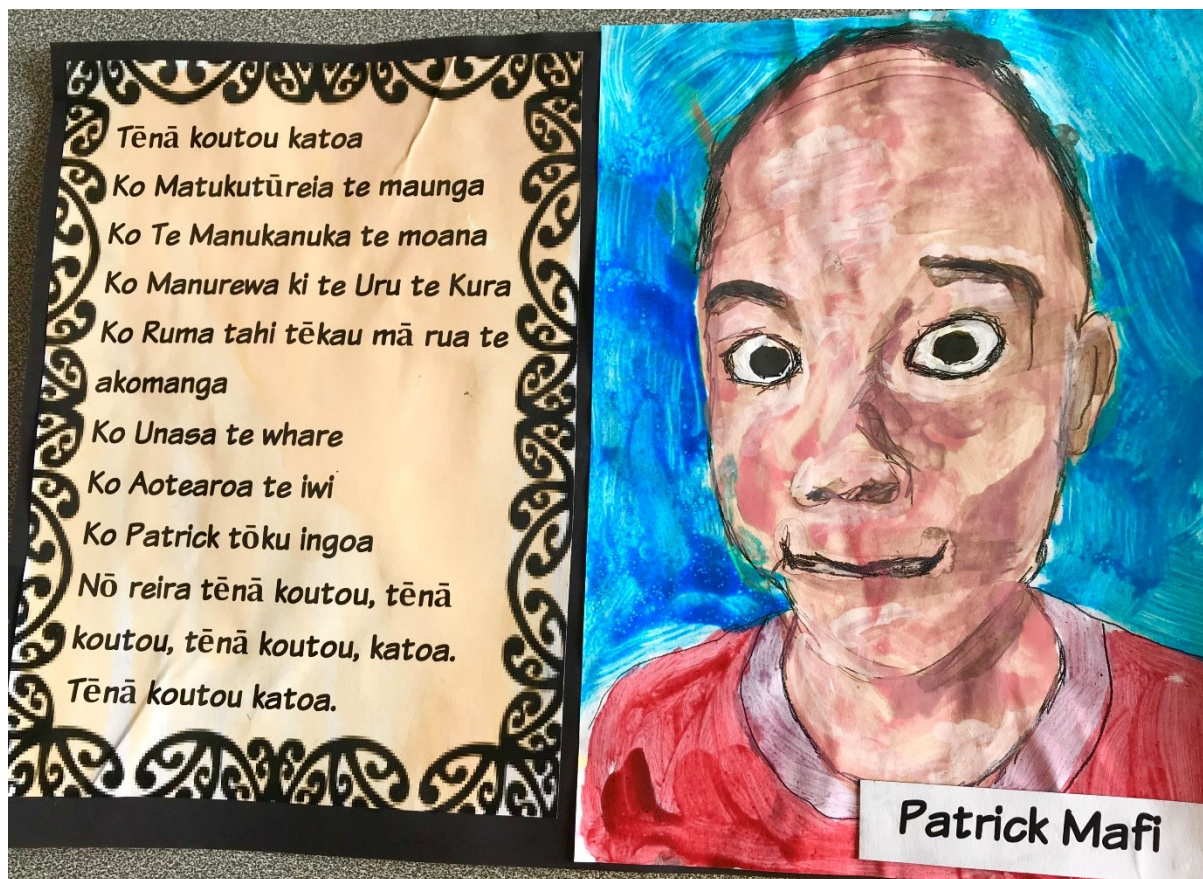 Tēnā koutou katoa
Ko Matukutūreia te maunga
Ko Te Manukanuka te moana
Ko Manurewa ki te Uru te Kura
Ko Ruma tahi tēkau mā rua te
akomanga
Ko Unasa te whare
Ko Aotearoa te iwi
Ko Patrick tōku ingoa
Nō reira tēnā koutou, tēnā
koutou, tēnā koutou, katoa.
Tēnā koutou katoa.
Patrick Mafi